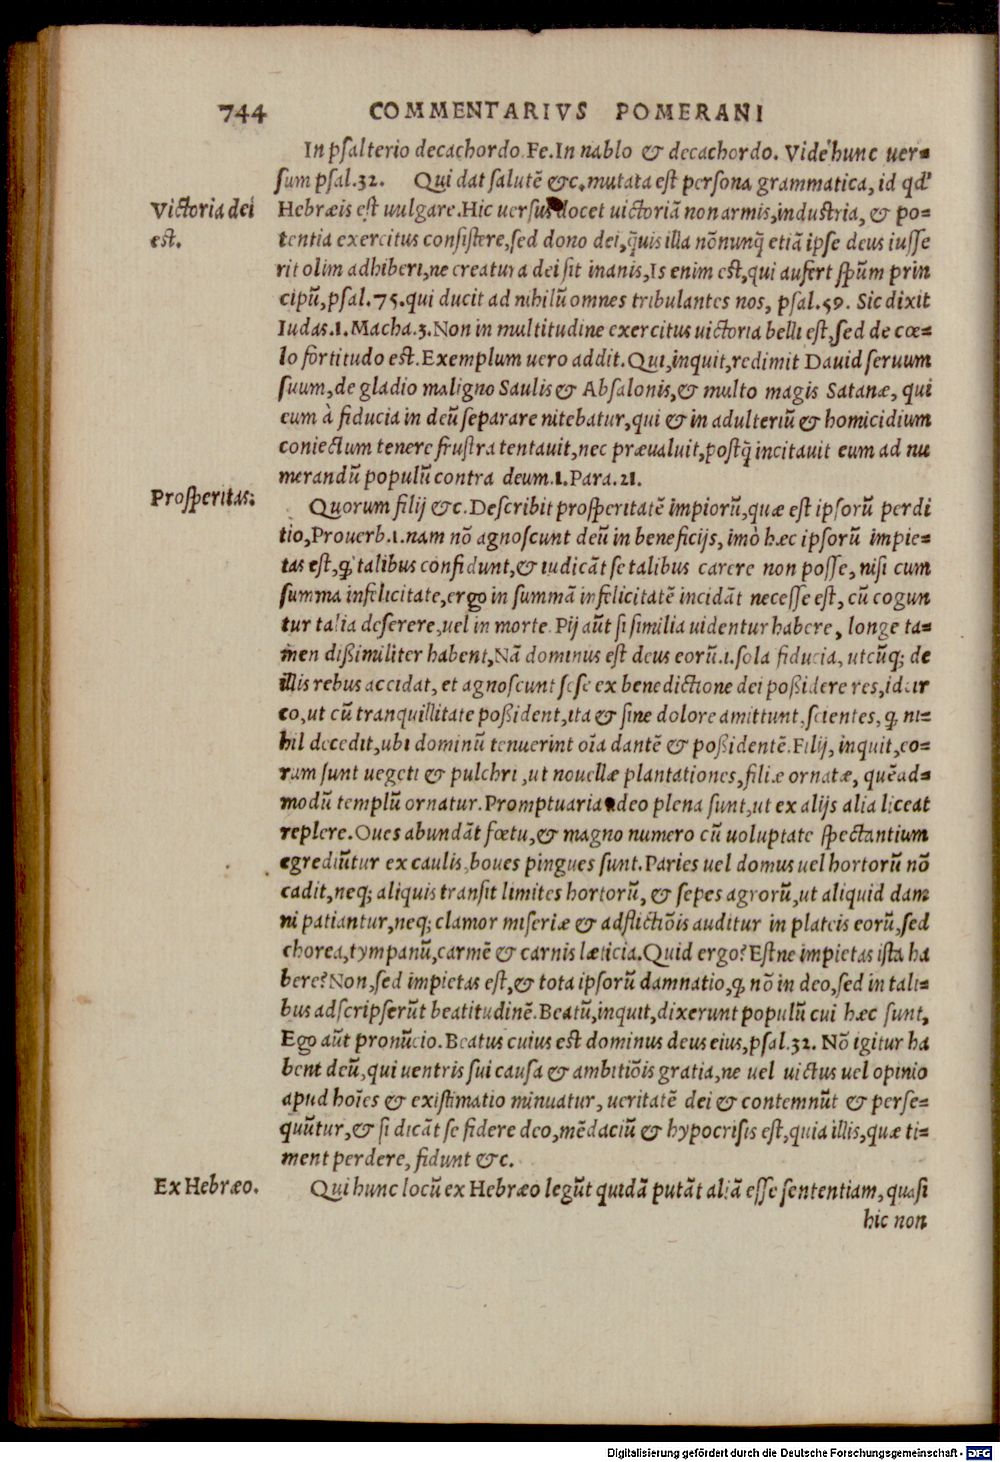 744 COMMENTARIVS POMERANI
In psalterio decachordo. Fe. In nablo & decachordo. Vide hunc uer=
sum psal.32. Qui dat salutē &c. mutata est persona grammatica, id qd'
Victoria dei
est.
Hebræis est uulgare. Hic uersus docet uictoriā non armis, industria, & po=
tentia exercitus consistere, sed dono dei, q̃uis illa nōnunq̃ etiā ipse deus iusse
rit olim adhiberi, ne creatura dei sit inanis, Is enim est, qui aufert sp̄um prin
cipū, psal.75. qui ducit ad nihilū omnes tribulantes nos, psal.59. Sic dixit
Iudas.1. Macha.3. Non in multitudine exercitus uictoria belli est, sed de cœ=
lo fortitudo est. Exemplum uero addit. Qui, inquit, redimit Dauid seruum
suum, de gladio maligno Saulis & Absalonis, & multo magis Satanæ, qui
eum à fiducia in deū separare nitebatur, qui & in adulteriū & homicidium
coniectum tenere frustra tentauit, nec præualuit, postq̃ incitauit eum ad nu
merandū populū contra deum.1. Para.21.
Prosperitas.
Quorum filij &c. Describit prosperitatē impiorū, quæ est ipsorū perdi
tio, Prouerb.1. nam nō agnoscunt deū in beneficijs, imò hæc ipsorū impie=
tas est, q̨ talibus confidunt, & iudicāt se talibus carere non posse, nisi cum
summa infelicitate, ergo in summā infelicitatē incidāt necesse est, cū cogun
tur talia deserere, uel in morte. Pij aūt si similia uidentur habere, longe ta=
men dißimiliter habent, Nā dominus est deus eorū.i. sola fiducia, utcūq; de
illis rebus accidat, et agnoscunt sese ex benedictione dei poßidere res, idcir
co, ut cū tranquillitate poßident, ita & sine dolore amittunt, scientes, q̨ ni=
hil decedit, ubi dominū tenuerint oīa dantē & poßidentē. Filij, inquit, eo=
rum sunt uegeti & pulchri, ut nouellæ plantationes, filiæ ornatæ, quēad=
modū templū ornatur. Promptuaria adeo plena sunt, ut ex alijs alia liceat
replere. Oues abundāt fœtu, & magno numero cū uoluptate spectantium
egrediūtur ex caulis, boues pingues sunt. Paries uel domus uel hortorū nō
cadit, neq; aliquis transit limites hortorū, & sepes agrorū, ut aliquid dam
ni patiantur, neq; clamor miseriæ & adflictiōis auditur in plateis eorū, sed
chorea, tympanū, carmē & carnis læticia. Quid ergo? Estne impietas ista ha
bere? Non, sed impietas est, & tota ipsorū damnatio, q̨ nō in deo, sed in tali=
bus adscripserūt beatitudinē. Beatū, inquit, dixerunt populū cui hæc sunt,
Ego aūt pronūcio. Beatus cuius est dominus deus eius, psal.32. Nō igitur ha
bent deū, qui uentris sui causa & ambitiōis gratia, ne uel uictus uel opinio
apud hoīes & existimatio minuatur, ueritatē dei & contemnūt & perse=
quūtur, & si dicāt se fidere deo, mēdaciū & hypocrisis est, quia illis, quæ ti=
ment perdere, fidunt &c.
Ex Hebræo.
Qui hunc locū ex Hebræo legūt quidā putāt aliā esse sententiam, quasi
hic non
Digitalisierung gefördert durch die Deutsche Forschungsgemeinschaft - DFG